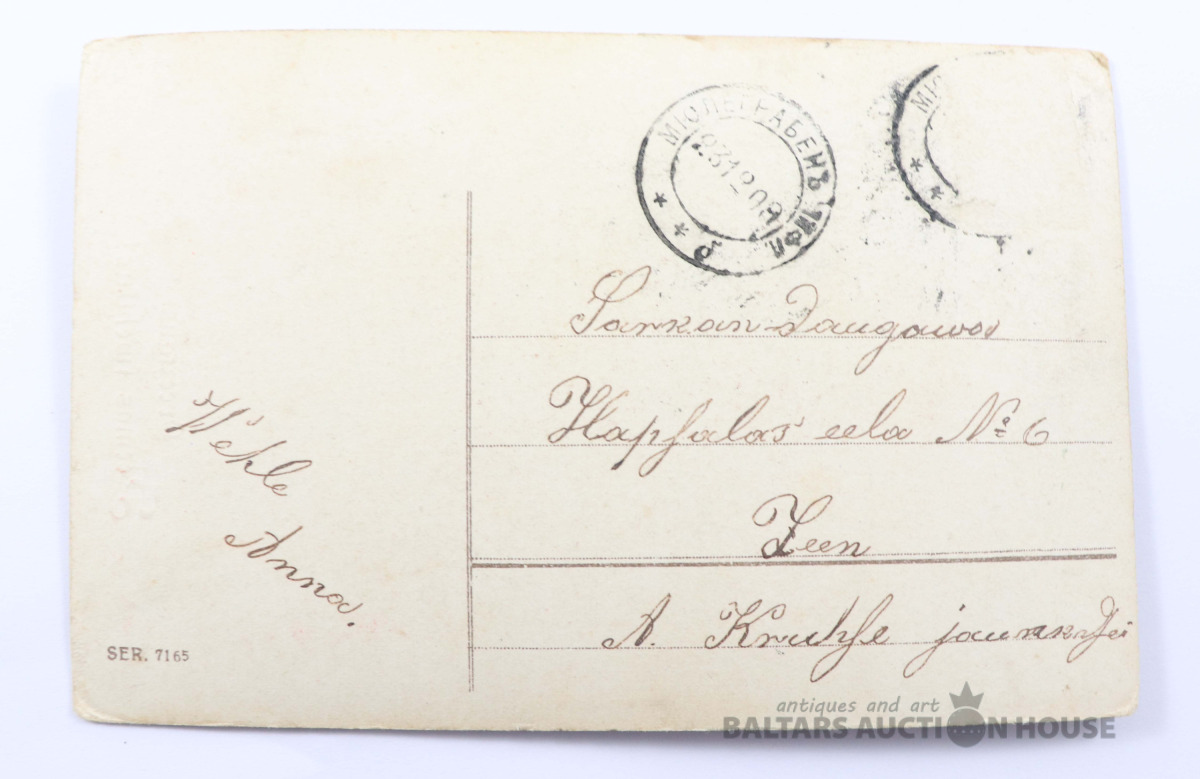 МЮЛЬГРАБЕНЪ ЛИФЛ
23 12 09
МЮ
Sarkan-Daugawa
Hapsalas eela № 6
Zeen
A. Kruhse jaunkdzei
Wehle
Anna.
SER. 7165
antiques and art
BALTARS AUCTION HOUSE